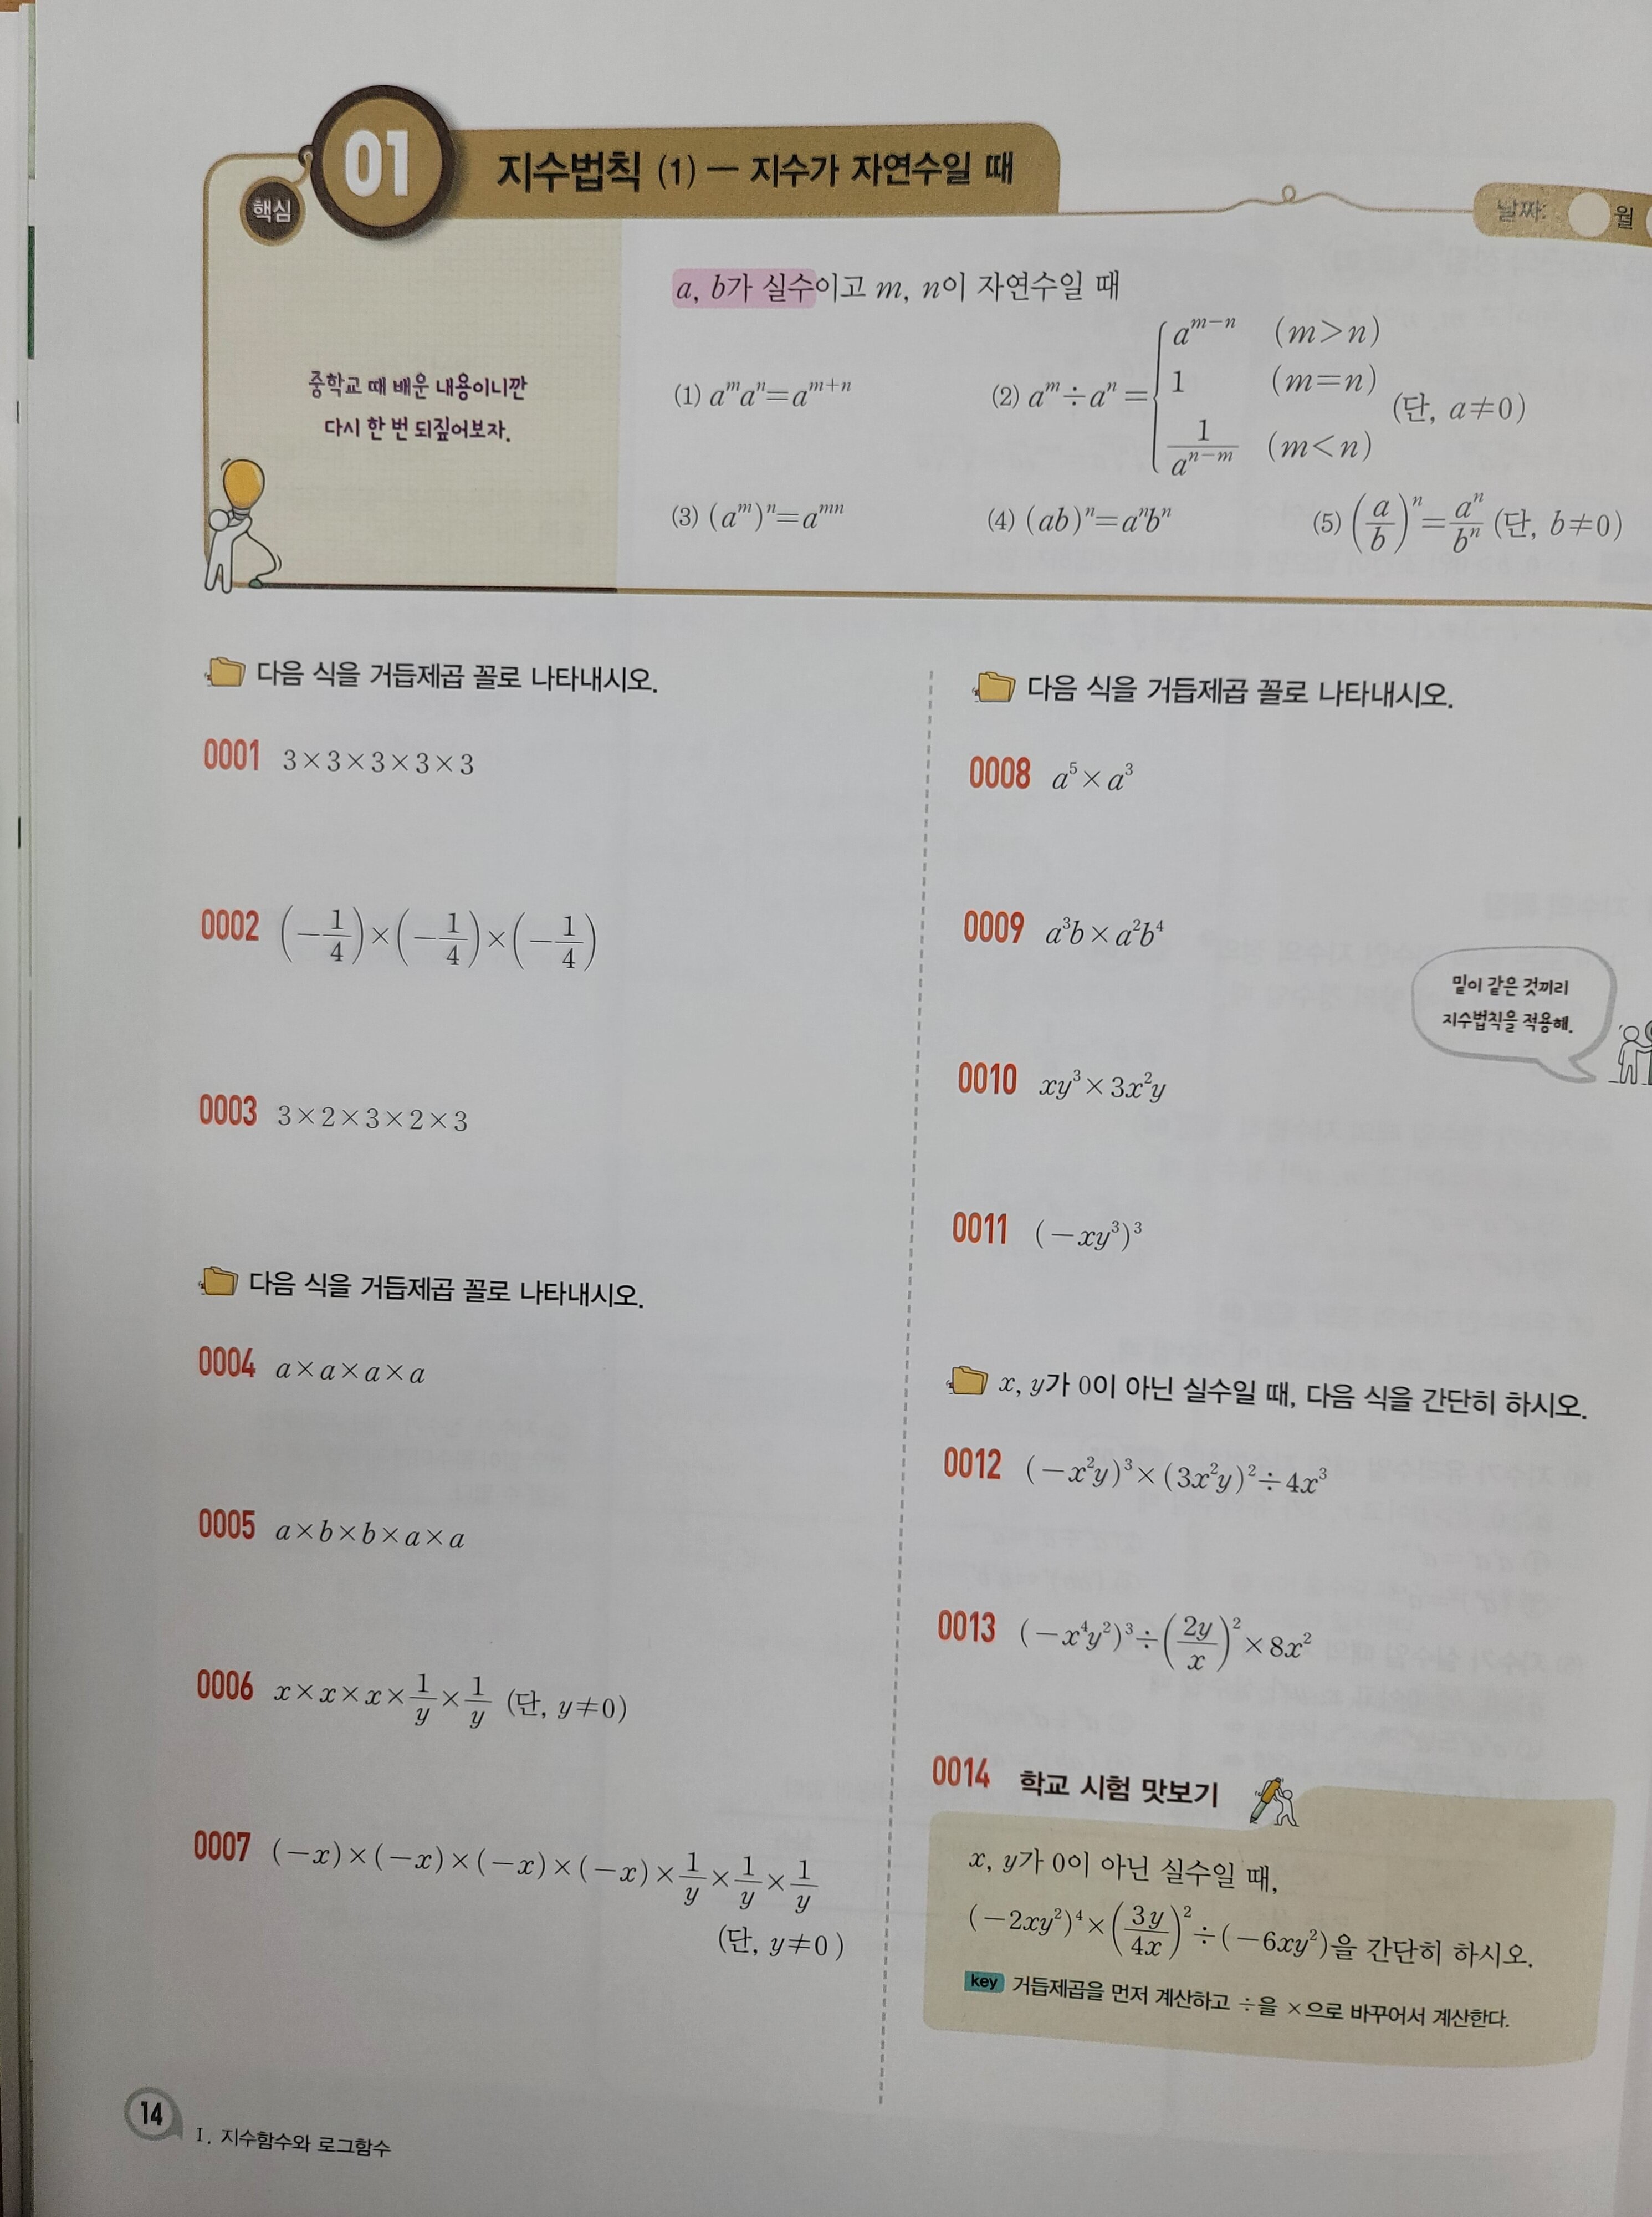 핵심
01
지수법칙 (1) — 지수가 자연수일 때
날짜: 월
중학교 때 배운 내용이니깐
다시 한 번 되짚어보자.
a, b가 실수이고 m, n이 자연수일 때
(1) aᵐaⁿ=aᵐ⁺ⁿ
(2) aᵐ÷aⁿ={ aᵐ⁻ⁿ (m>n)
1 (m=n)
1/aⁿ⁻ᵐ (m<n) (단, a≠0)
(3) (aᵐ)ⁿ=aᵐⁿ
(4) (ab)ⁿ=aⁿbⁿ
(5) (a/b)ⁿ=aⁿ/bⁿ (단, b≠0)
다음 식을 거듭제곱 꼴로 나타내시오.
0001 3×3×3×3×3
0002 (−1/4)×(−1/4)×(−1/4)
0003 3×2×3×2×3
다음 식을 거듭제곱 꼴로 나타내시오.
0004 a×a×a×a
0005 a×b×b×a×a
0006 x×x×x×1/y×1/y (단, y≠0)
0007 (−x)×(−x)×(−x)×(−x)×1/y×1/y×1/y
(단, y≠0)
다음 식을 거듭제곱 꼴로 나타내시오.
0008 a⁵×a³
0009 a³b×a²b⁴
밑이 같은 것끼리
지수법칙을 적용해.
0010 xy³×3x²y
0011 (−xy³)³
x, y가 0이 아닌 실수일 때, 다음 식을 간단히 하시오.
0012 (−x²y)³×(3x²y)²÷4x³
0013 (−x⁴y²)³÷(2y/x)²×8x²
0014 학교 시험 맛보기
x, y가 0이 아닌 실수일 때,
(−2xy²)⁴×(3y/4x)²÷(−6xy²)을 간단히 하시오.
key 거듭제곱을 먼저 계산하고 ÷을 ×으로 바꾸어서 계산한다.
14
Ⅰ. 지수함수와 로그함수